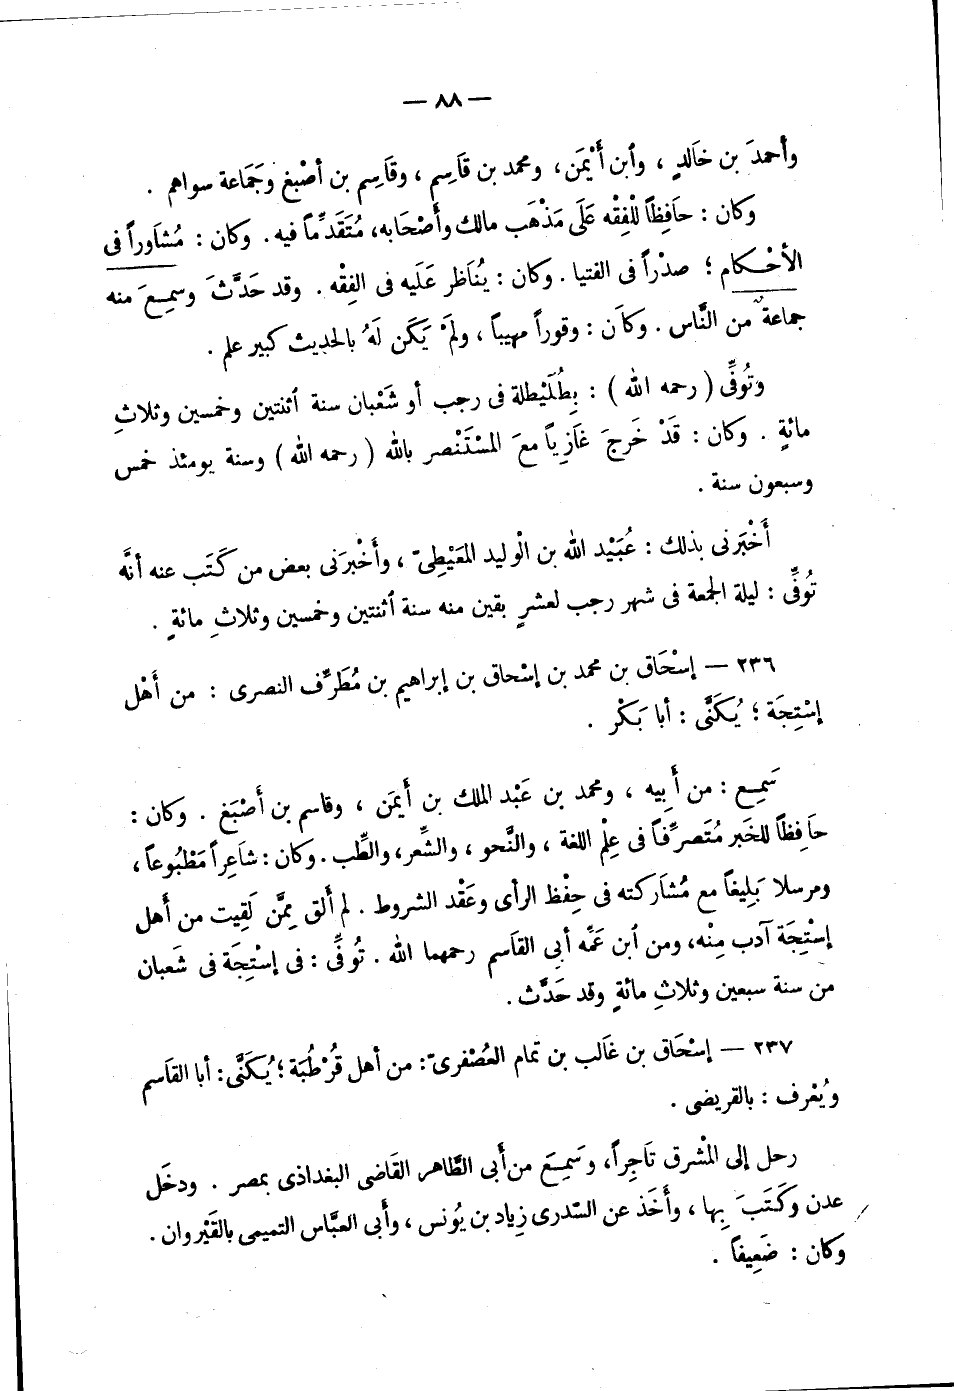 — ٨٨ —
وأحمدَ بن خَالدٍ ، وٱبن أَيْمَن، ومحمد بن قَاسِم ، وقَاسِم بن أصْبغ وجَمَاعة سواهم .
وكان : حَافِظاً للْفِقْه عَلَى مَذْهَب مالك وأَصْحَابه، مُتَقَدِّماً فيه. وكان : مُشَاوراً فى
الأحْكام ؛ صدْراً فى الفتيا . وكان : يُنَاظر عَلَيه فى الفِقْه . وقد حَدَّثَ وسمِعَ منه
جماعةٌ من النَّاس . وكاَن : وقوراً مهيباً ، ولَمْ يَكَن لَهُ بالحَديث كبير علم .
وتُوفِّى ( رحمه الله ) : بِطُلَيْطلة فى رجب أو شَعْبان سنة ٱثنتين وخمسين وثلاثِ
مائةٍ . وكان : قَدْ خَرجَ غَازِياً معَ المسْتَنْصر بالله ( رحمه الله ) وسنة يومئذ خمس
وسبعون سنة .
أَخْبَرنى بذلك : عُبَيْد الله بن الْوليد المَعَيْطِىّ ، وأَخْبرَنى بعض من كَتَب عنه أنَّه
تُوفِّى : ليلة الجمعة فى شهر رجب لعشرٍ بقين منه سنة ٱثنتين وخمسين وثلاثِ مائةٍ .
٢٣٦ — إسْحَاق بن محمد بن إسْحاق بن إبراهيم بن مُطَرِّف النصرى : من أهْل
إسْتِجَة ؛ يُكَنَّى : أبا بَكْر .
سَمِع : من أَبِيه ، ومحمد بن عَبْد الملك بن أَيمَن ، وقاسم بن أَصْبَغ . وكان :
حَافِظاً للخَبر مُتَصرِّفاً فى عِلْم اللغة ، والنَّحو ، والشِّعر، والطِّب . وكان : شَاعِراً مَطْبُوعاً ،
ومرسلا بَلِيغاً مع مُشَاركته فى حِفْظ الرأى وعَقْد الشروط . لم أَلق مِمَّن لَقِيت من أَهل
إسْتِجَة آدب مِنْه، ومن ٱبن عَمَّه أبى القَاسم رحمهما الله . تُوفِّى : فى إسْتِجَة فى شَعبان
من سنة سبعين وثلاثِ مائةٍ وقد حَدَّث .
٢٣٧ — إسْحَاق بن غَالب بن تمام العُصْفرىّ : من أهل قُرْطُبَة ؛ يُكَنَّى : أبا القَاسم
ويُعْرف : بالقريضى .
رحل إلى المْشرق تَاجِراً، وسَمِعَ من أَبى الطَّاهر القَاضى البغداذى بمصر . ودخَل
عدن وكَتَبَ بِها ، وأَخَذ عن السّدرى زِياد بن يُونس ، وأَبى العبَّاس التميمى بالقَيْروان .
وكان : ضَعِيفاً .